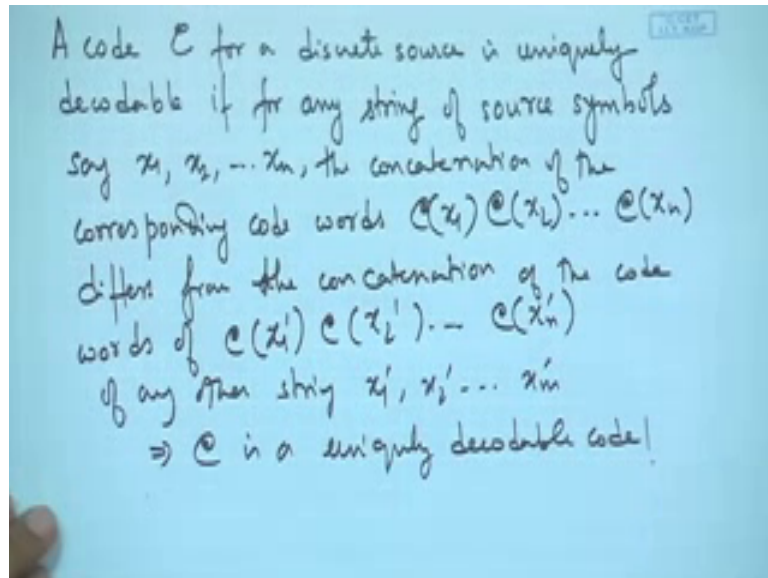 A code C for a discrete source is uniquely
decodable if for any string of source symbols
say x1, x2, ... xn, the concatenation of the
corresponding code words C(x1) C(x2) ... C(xn)
differs from the concatenation of the code
words of C(x1') C(x2') ... C(xm')
of any other string x1', x2' ... xm'
⇒ C is a uniquely decodable code!